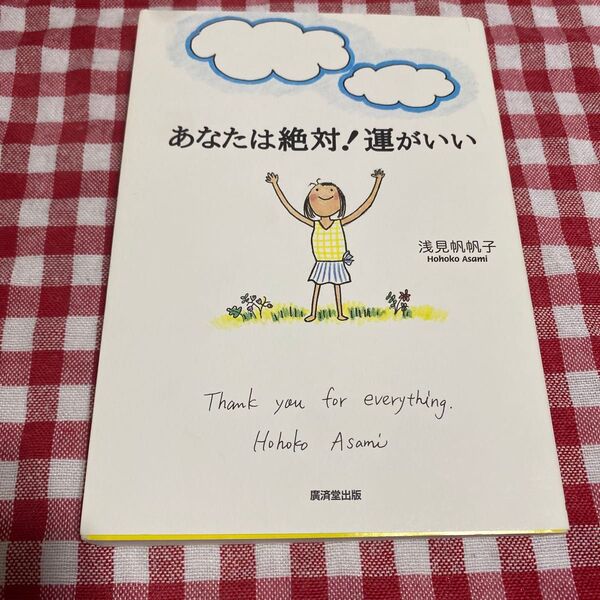 あなたは絶対！運がいい
浅見帆帆子
Hohoko Asami
Thank you for everything.
Hohoko Asami
廣済堂出版